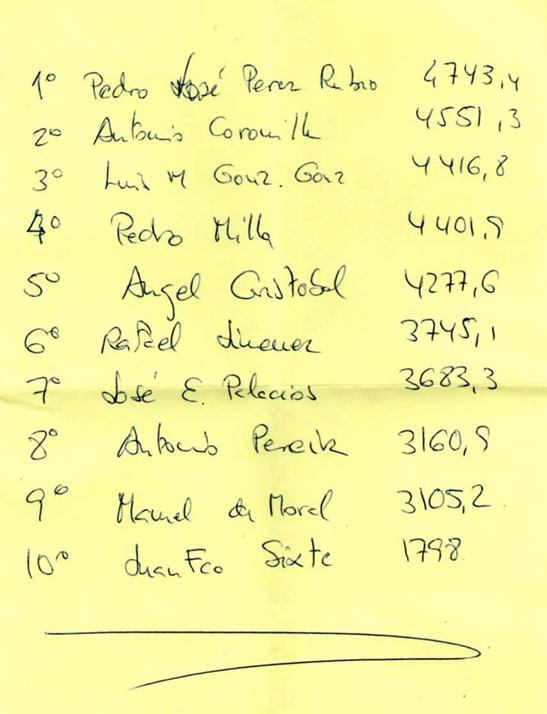 1º Pedro José Perez Rubio 4743,4
2º Antonio Coronilla 4551,3
3º Luis M Gonz. Gonz 4416,8
4º Pedro Milla 4401,9
5º Angel Cristobal 4277,6
6º Rafael Jimenez 3745,1
7º José E. Palacios 3683,3
8º Antonio Pereira 3160,9
9º Manuel de Moral 3105,2
10º Juan Fco Sixte 1798